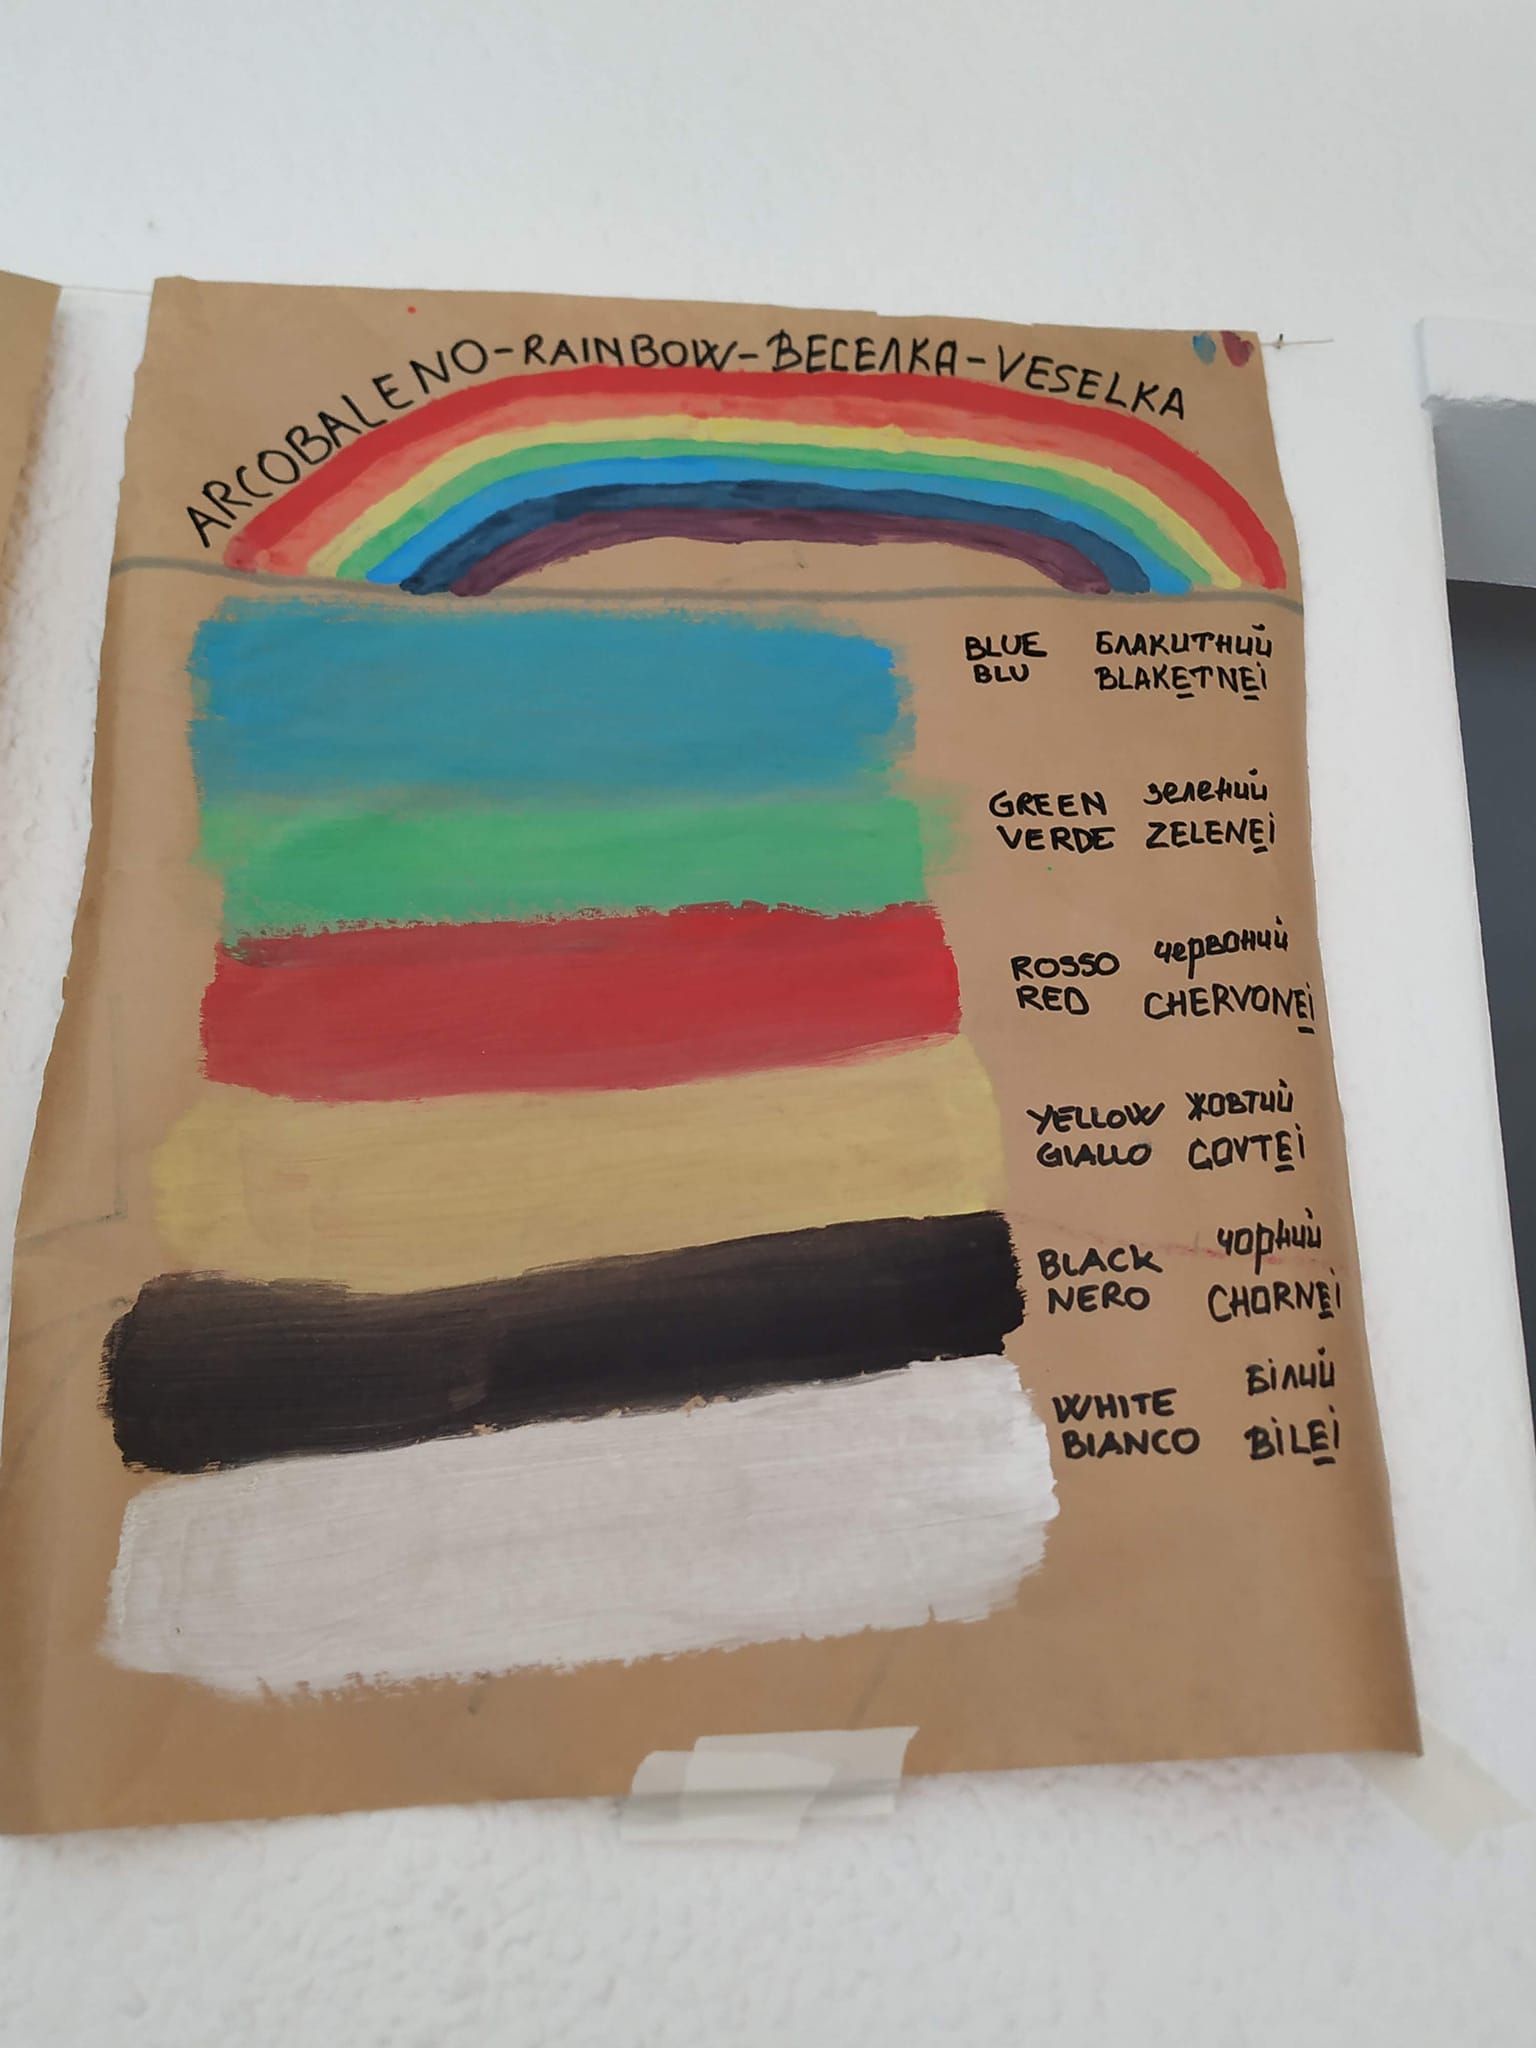 ARCOBALENO-RAINBOW-ВЕСЕЛКА-VESELKA
BLUE БЛАКИТНИЙ
BLU BLAKETNEI
GREEN зелений
VERDE ZELENEI
ROSSO червоний
RED CHERVONEI
YELLOW ЖОВТИЙ
GIALLO GOVTEI
BLACK чорний
NERO CHORNEI
WHITE БІЛИЙ
BIANCO BILEI